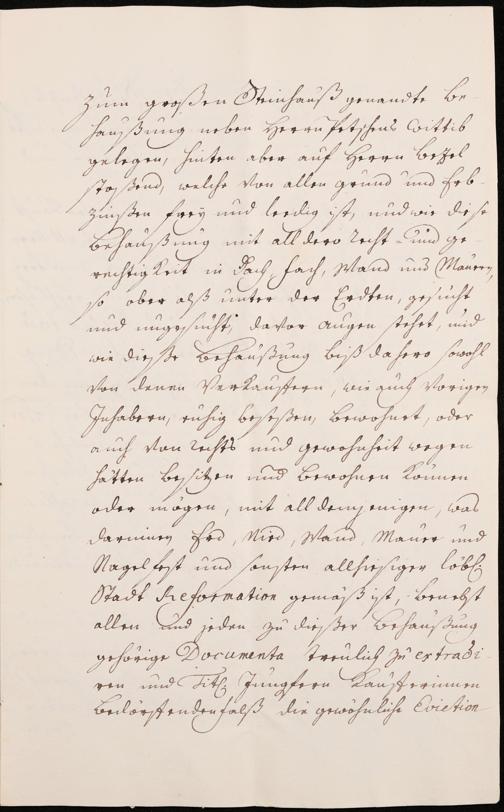 zum großen Steinhauß genandte Be-
haußung neben Herrn Petschens Wittib
gelegen, hinten aber auf Herrn Bezel
stoßend, welche von allen grund und Erb-
zinßen frey und leedig ist, und wie diese
Behaußung mit all dero recht- und ge-
rechtigkeit in Dach, fach, Wand und Mauern,
so ober alß unter der Erdten, gesucht
und ungesucht, davor augen stehet, und
wie dieße Behaußung biß dahero sowohl
von denen Verkauffern, wie auch vorigen
Inhabern, ruhig beseßen, bewohnet, oder
auch von rechts und gewohnheit wegen
hätten besitzen und bewohnen können
oder mögen, mit all demjenigen, was
darinnen Erd, Nied, Wand, Mauer und
Nagelfest und sonsten allhiesiger löbl.
Stadt Reformation gemäß ist, benebst
allen und jeden zu dießer Behaußung
gehörige Documenta treulich zu extradi-
ren und Titl. Jungfern Kaufferinnen
bedörffendenfalß die gewöhnliche Eviction